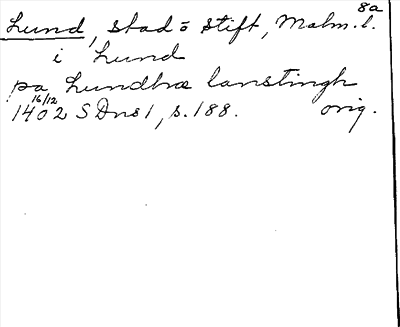 8a
Lund, stad o stift, Malm. l.
i Lund
pa Lundhræ lanstingh
16/12
1402 SDns1, s. 188. orig.